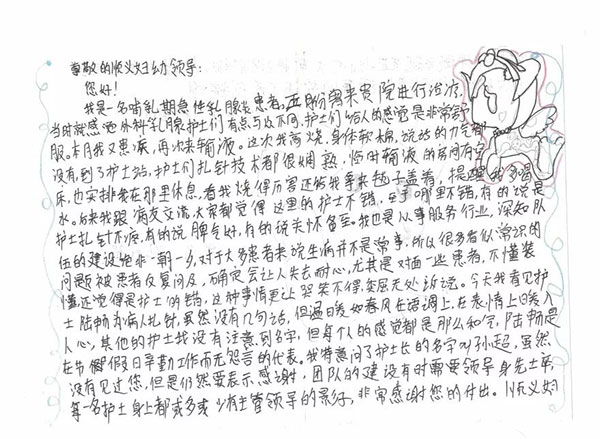 尊敬的顺义妇幼领导:
您好!
我是一名哺乳期急性乳腺炎患者,两月份曾来贵院进行治疗,
当时就感觉外科乳腺护士们有点与众不同,护士们给人的感觉是非常舒
服。本月我又患病,再次来输液。这次我高烧,身体软棉,说话的力气都
没有,到了护士站,护士们扎针技术都很娴熟,临时输液的房间有空
床,也安排我在那里休息,看我烧得厉害还给我拿来毯子盖着,提醒我多喝
水。后来我跟病友交流,大家都觉得这里的护士不错。至于哪里不错,有的说是
护士扎针不疼,有的说脾气好,有的说关怀备至。我也是从事服务行业,深知队
伍的建设绝非一朝一夕,对于大多患者来说生病并不是常事,所以很多看似常识的
问题被患者反复问及,确定会让人失去耐心,尤其是对面一些患者,不懂装
懂还觉得是护士的错,这种事情更让哭笑不得,委屈无处诉说。今天我看见护
士陆畅为病人扎针,虽然没有几句话,但温暖如春风在语调上,在表情上日暖入
人心,其他的护士我没有注意到名字,但每个人的感觉都是那么和气,陆畅是
在节假日辛勤工作而无怨言的代表。我特意问了护士长的名字叫孙超,虽然
没有见过您,但是仍然要表示感谢,团队的建设有时需要领导身先士卒,
每一名护士身上都或多或少有主管领导的影子,非常感谢您的付出。顺义妇